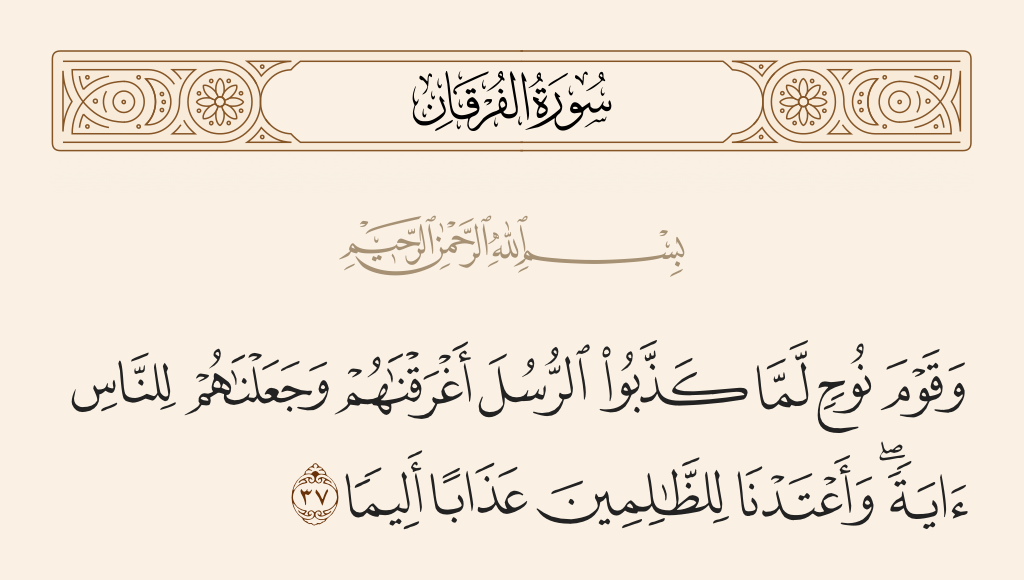 سُورَةُ الفُرْقَانِ
بِسْمِ ٱللَّهِ ٱلرَّحْمَٰنِ ٱلرَّحِيمِ
وَقَوْمَ نُوحٍ لَّمَّا كَذَّبُوا۟ ٱلرُّسُلَ أَغْرَقْنَٰهُمْ وَجَعَلْنَٰهُمْ لِلنَّاسِ
ءَايَةًۖ وَأَعْتَدْنَا لِلظَّٰلِمِينَ عَذَابًا أَلِيمًا ٣٧